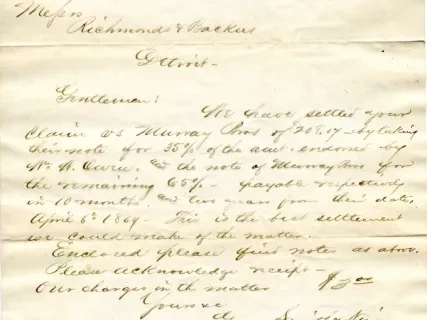 Messrs
Richmonds & Backus
Detroit -
Gentlemen:
We have settled your
claim vs Murray Bros of 208.17 by taking
their note for 35% of the amt. endorsed by
Wm. W. Owen, and the note of Murray Bros for
the remaining 65% - payable respectively
in 10 months and two years from their date,
April 6th 1869 - This is the best settlement
we could make of the matter.
Enclosed please find notes as above.
Please acknowledge receipt -
Our charges in the matter $3.00
Yours &c